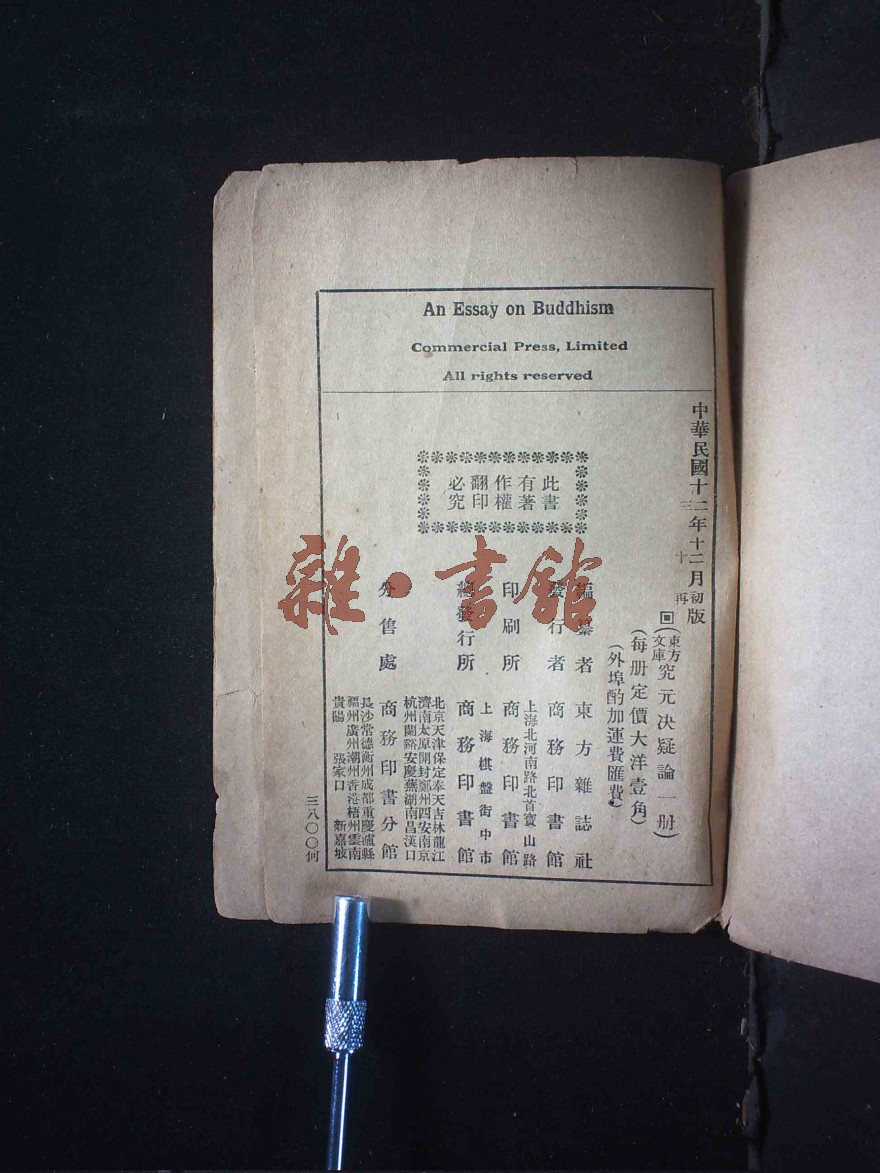 An Essay on Buddhism
Commercial Press, Limited
All rights reserved
中華民國十二年十二月初版
三 十 再
回(東方文庫)究元决疑論一册)
(每册定價大洋壹角)
(外埠酌加運費匯費)
此書
有著
作權
翻印
必究
編纂者 東方雜誌社
發行者 商務印書館
上海北河南路北首寶山路
印刷所 商務印書館
上海棋盤街中市
總發行所 商務印書館
北京天津保定奉天吉林龍江
濟南太原開封鄭州西安南京
杭州蘭谿安慶蕪湖南昌漢口
分售處 商務印書分館
長沙常德衡州成都重慶瀘縣
福州廣州潮州香港梧州雲南
貴陽 張家口 新嘉坡
三八〇〇何
雜·書館